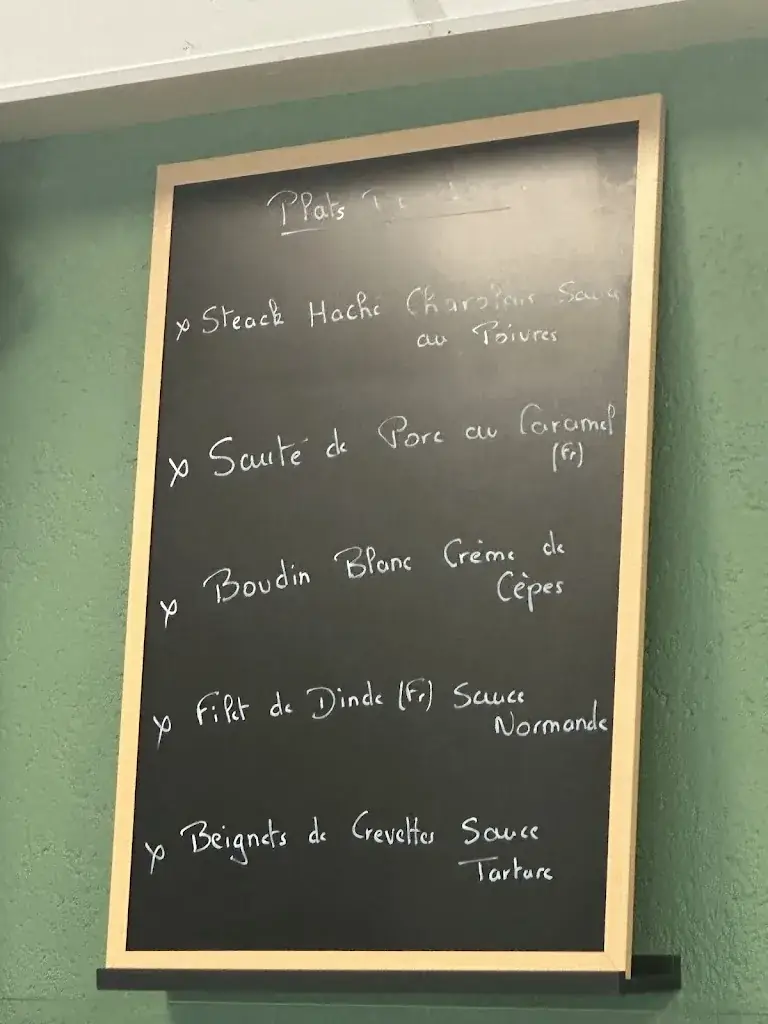 Plats
x Steack Haché Charolais Sauce
au Poivres
x Sauté de Porc au Caramel
(Fr)
x Boudin Blanc Crème de
Cèpes
x Filet de Dinde (Fr) Sauce
Normande
x Beignets de Crevettes Sauce
Tartare